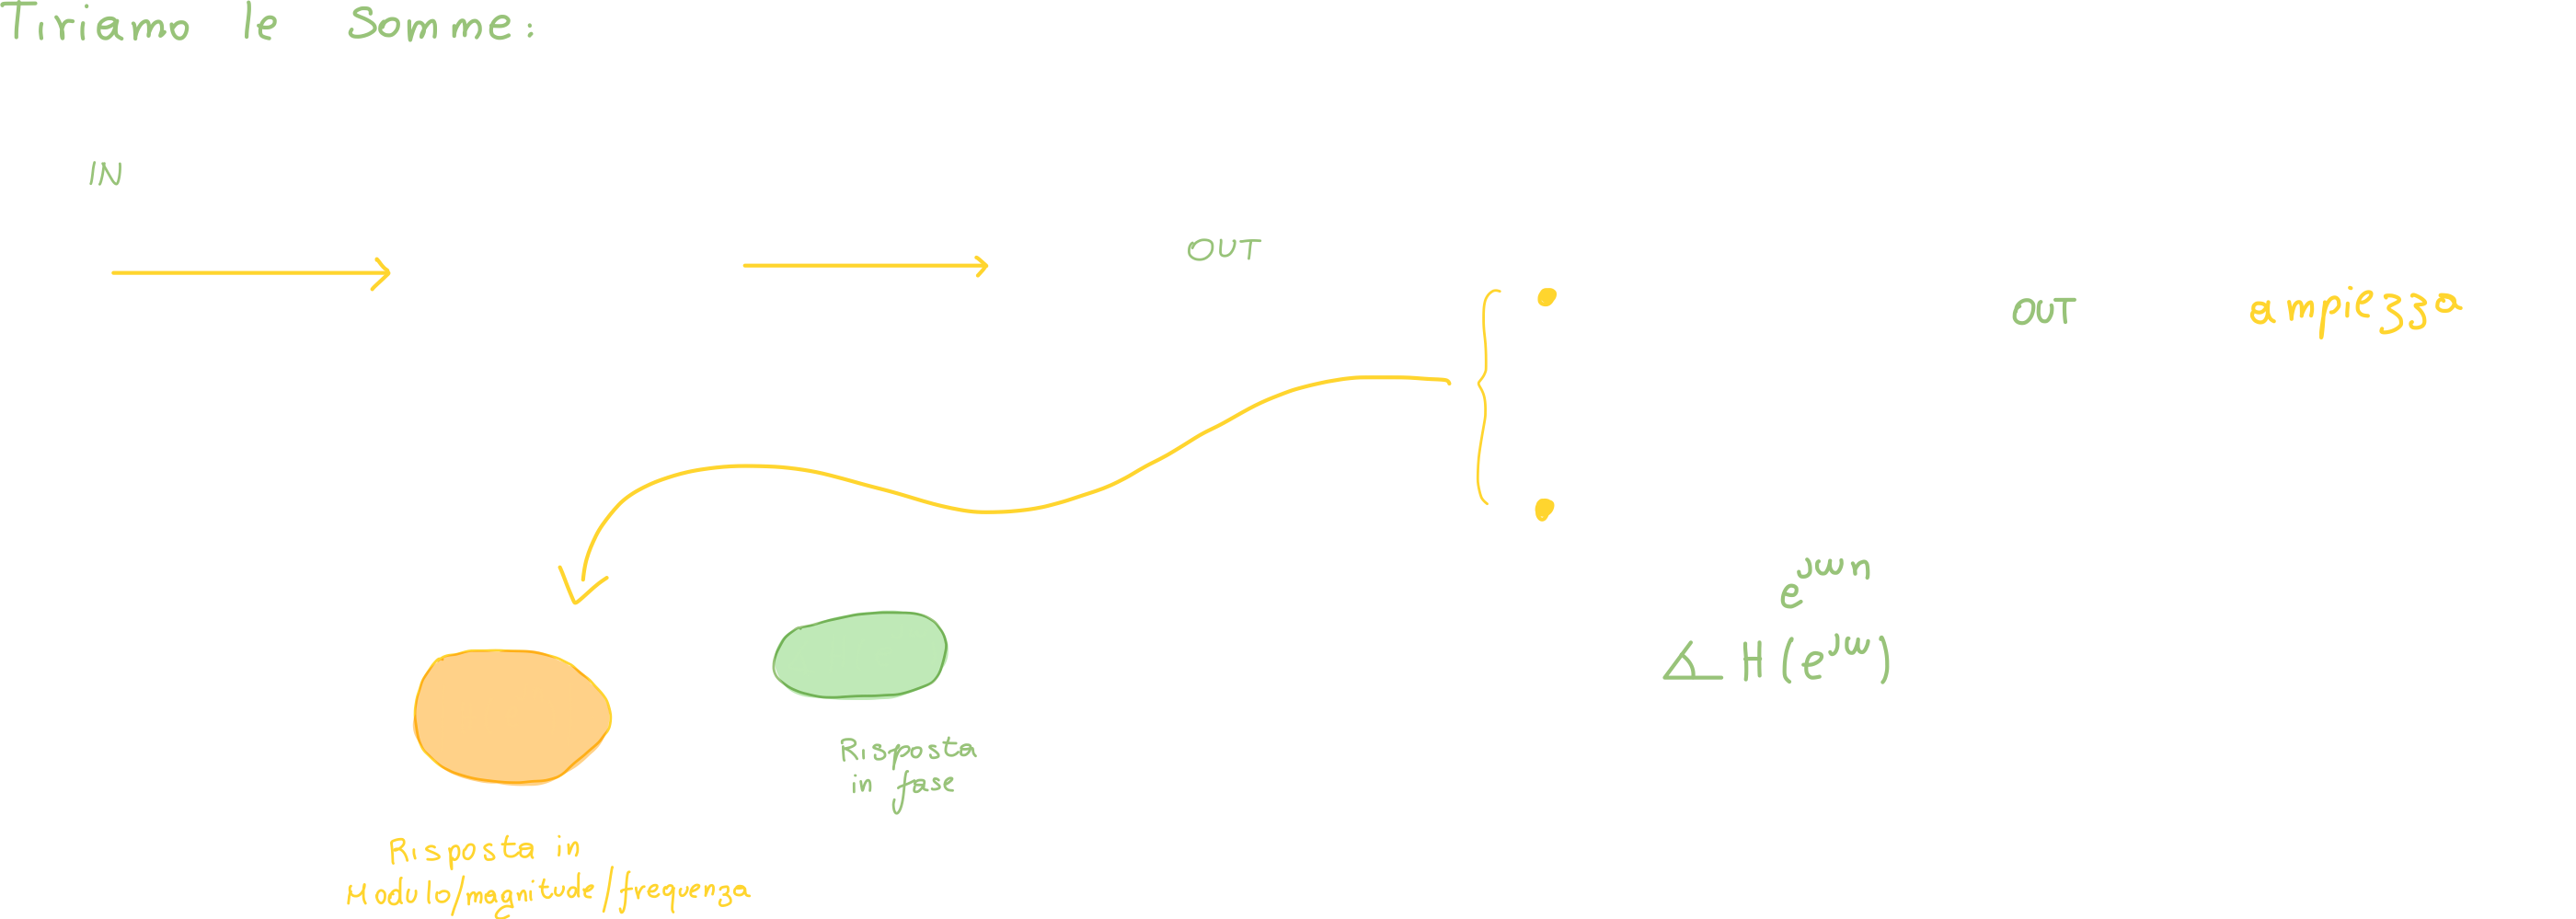 Tiriamo le Somme:
IN
OUT
OUT ampiezza
e^jwn
∡ H(e^jw)
Risposta
in fase
Risposta in
Modulo/magnitude/frequenza